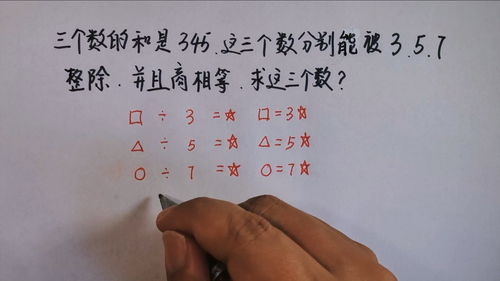 三个数的和是345.这三个数分别能被3.5.7
整除.并且商相等.求这三个数?
□ ÷ 3 =☆ □=3☆
△ ÷ 5 =☆ △=5☆
○ ÷ 7 =☆ ○=7☆